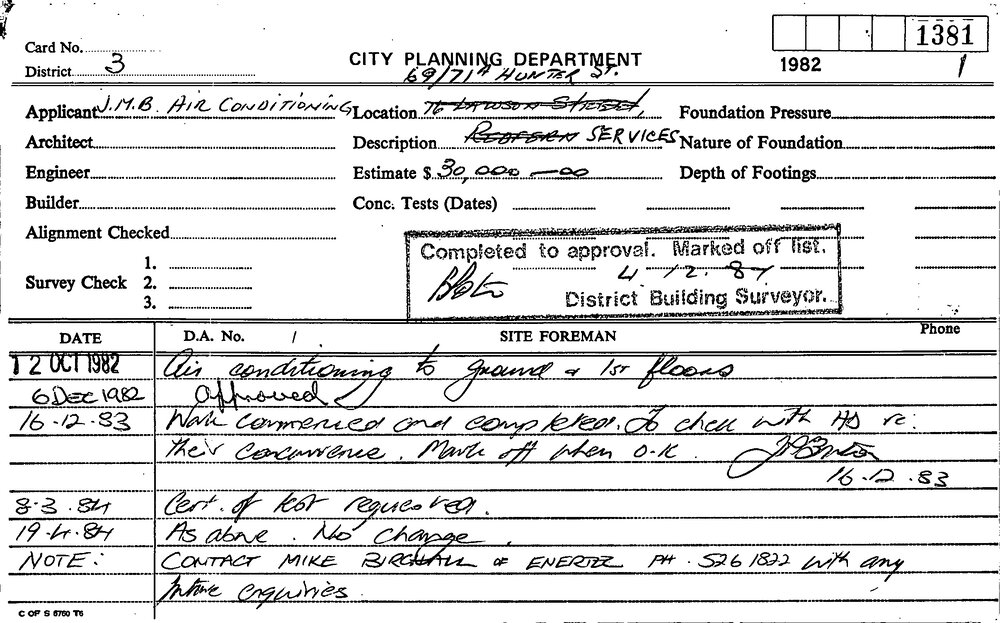 1381
Card No.
CITY PLANNING DEPARTMENT
1982
District 3
69/71A HUNTER ST.
Applicant J.M.B. AIR CONDITIONING Location 76 LAWSON STREET, Foundation Pressure
Architect Description REDFERN SERVICES Nature of Foundation
Engineer Estimate $ 30,000 — 00 Depth of Footings
Builder Conc. Tests (Dates)
Alignment Checked
Completed to approval. Marked off list.
4 - 12. 84
District Building Surveyor.
Survey Check 1.
2.
3.
DATE D.A. No. / SITE FOREMAN Phone
12 OCT 1982 Air conditioning to ground & 1st floors
6 DEC 1982 Approved
16.12.83 Work commenced and completed. To check with HD re:
their concurrence. Mark off when O.K.
16.12.83
8.3.84 Cert. of test requested.
19.4.84 As above. No change.
NOTE: CONTACT MIKE OF ENERTEC PH. 526 1822 with any
future enquiries.
C OF S 5760 T6